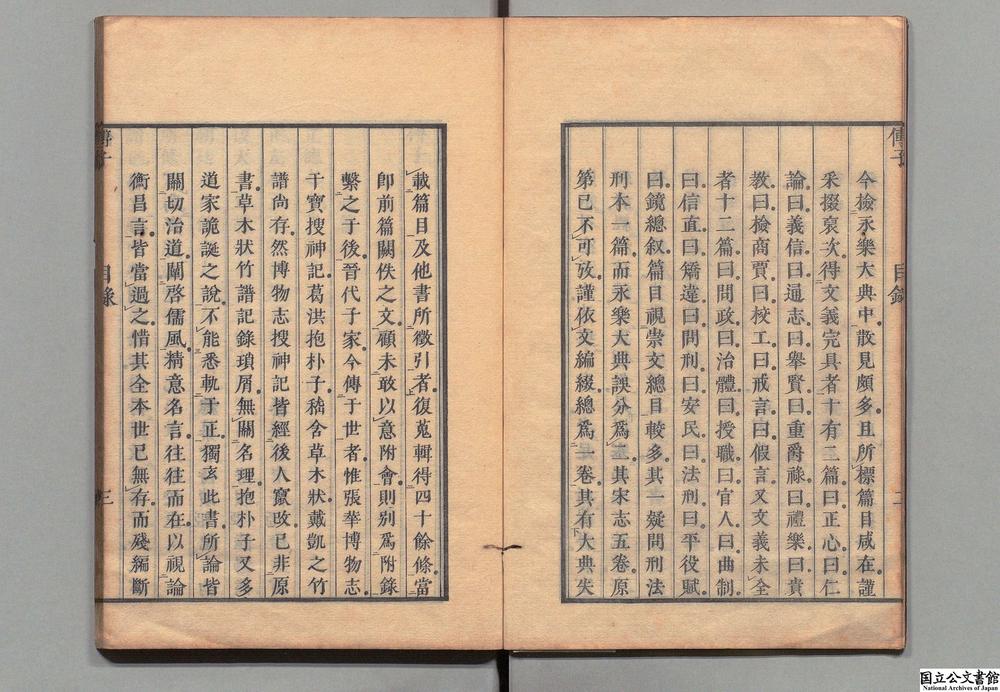 傳子
目錄
二
今檢永樂大典中散見頗多且所標篇目咸在謹
采掇裒次得文義完具者十有二篇曰正心曰仁
論曰義信曰通志曰舉賢曰重爵祿曰禮樂曰貴
教曰檢商賈曰校工曰戒言曰假言又文義未全
者十二篇曰問政曰治體曰授職曰官人曰曲制
曰信直曰矯違曰問刑曰安民曰法刑曰平役賦
曰鏡總叙篇目視崇文總目較多其一疑問刑法
刑本一篇而永樂大典誤分爲二其宋志五卷原
第已不可攷謹依文編綴總爲一卷其有大典失
載篇目及他書所徵引者復蒐輯得四十餘條當
卽前篇闕佚之文顧未敢以意附會則別爲附錄
繫之于後晉代子家今傳于世者惟張華博物志
干寶搜神記葛洪抱朴子嵇含草木狀戴凱之竹
譜尚存然博物志搜神記皆經後人竄改已非原
書草木狀竹譜記錄瑣屑無關名理抱朴子又多
道家詭誕之說不能悉軌于正獨玄此書所論皆
關切治道闡啓儒風精意名言往往而在以視論
衡昌言皆當過之惜其全本世已無存而殘編斷
傳子
目錄
三
国立公文書館
National Archives of Japan